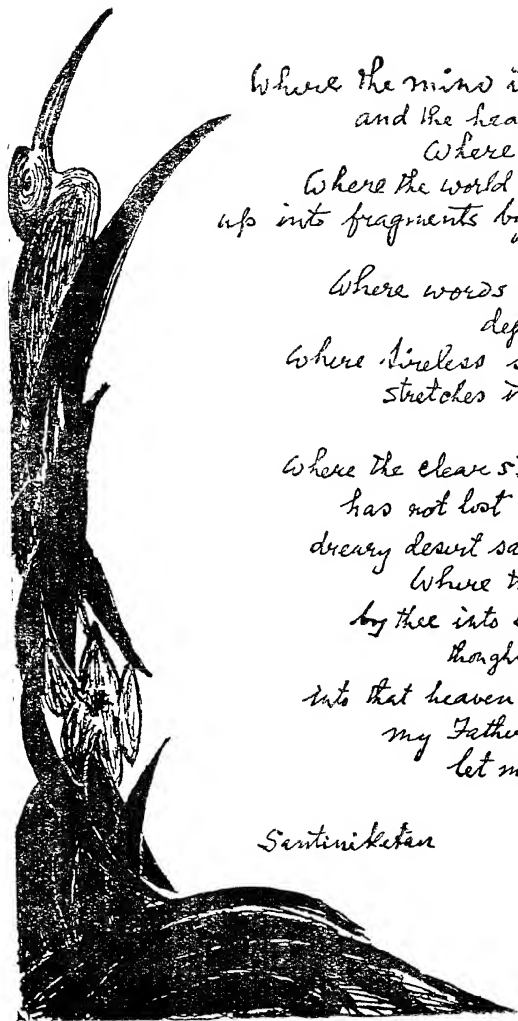 Where the mind i
and the hea
Where
Where the world
up into fragments b
Where words
de
Where tireless s
stretches i
Where the clear s
has not lost
dreary desert sa
Where t
by thee into
though
into that heaven
my Father
let m
Santiniketan